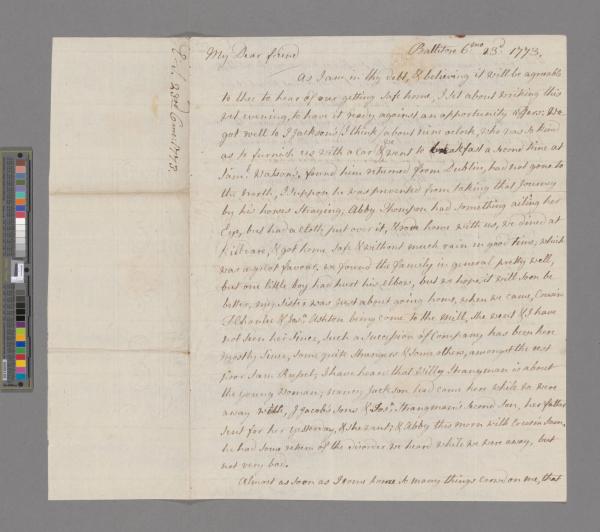 My Dear friend
Ballitore 6mo 23d 1773.
As I am in thy debt, & believing it will be agreeable
to thee to hear of our getting safe home, I set about writing this
1st evening, to have it ready against an opportunity offers: We
got well to J Jackson's I think about nine o'clock, who was so kind
as to furnish us with a Car & we went to breakfast a second time at
Saml. Watson's, found him returned from Dublin, had not gone to
the north, I suppose he was prevented from taking that Journey
by his horses Straying; Abby Thompson had something ailing her
Eye, but had a cloth put over it, & rode home with us, we dined at
Kilcare, & got home safe & without much rain in good time, which
was a great favour. we found the family in general pretty well,
but one little boy had hurt his elbow, but we hope it will soon be
better, my Sister was just about going home, when we came, Cousin
& Jos. Ashton being come to the Mill, she went & I have
not seen her since, such a succession of Company has been here
mostly since, some quite strangers & some others, amongst the rest
poor Sam Russel; I have heard that Willy Strangman is about
the young woman; nancy Jackson had come here while we were
away with J Jacob's sons & Jos. Strangman's second son, her father
sent for her yesterday, & she went; & Abby this morn with Cousin Sam,
he had some return of the disorder we heard while we were away, but
not very bad.
Almost as soon as I come home so many things crowd on me, that
23d 6mo: 1773